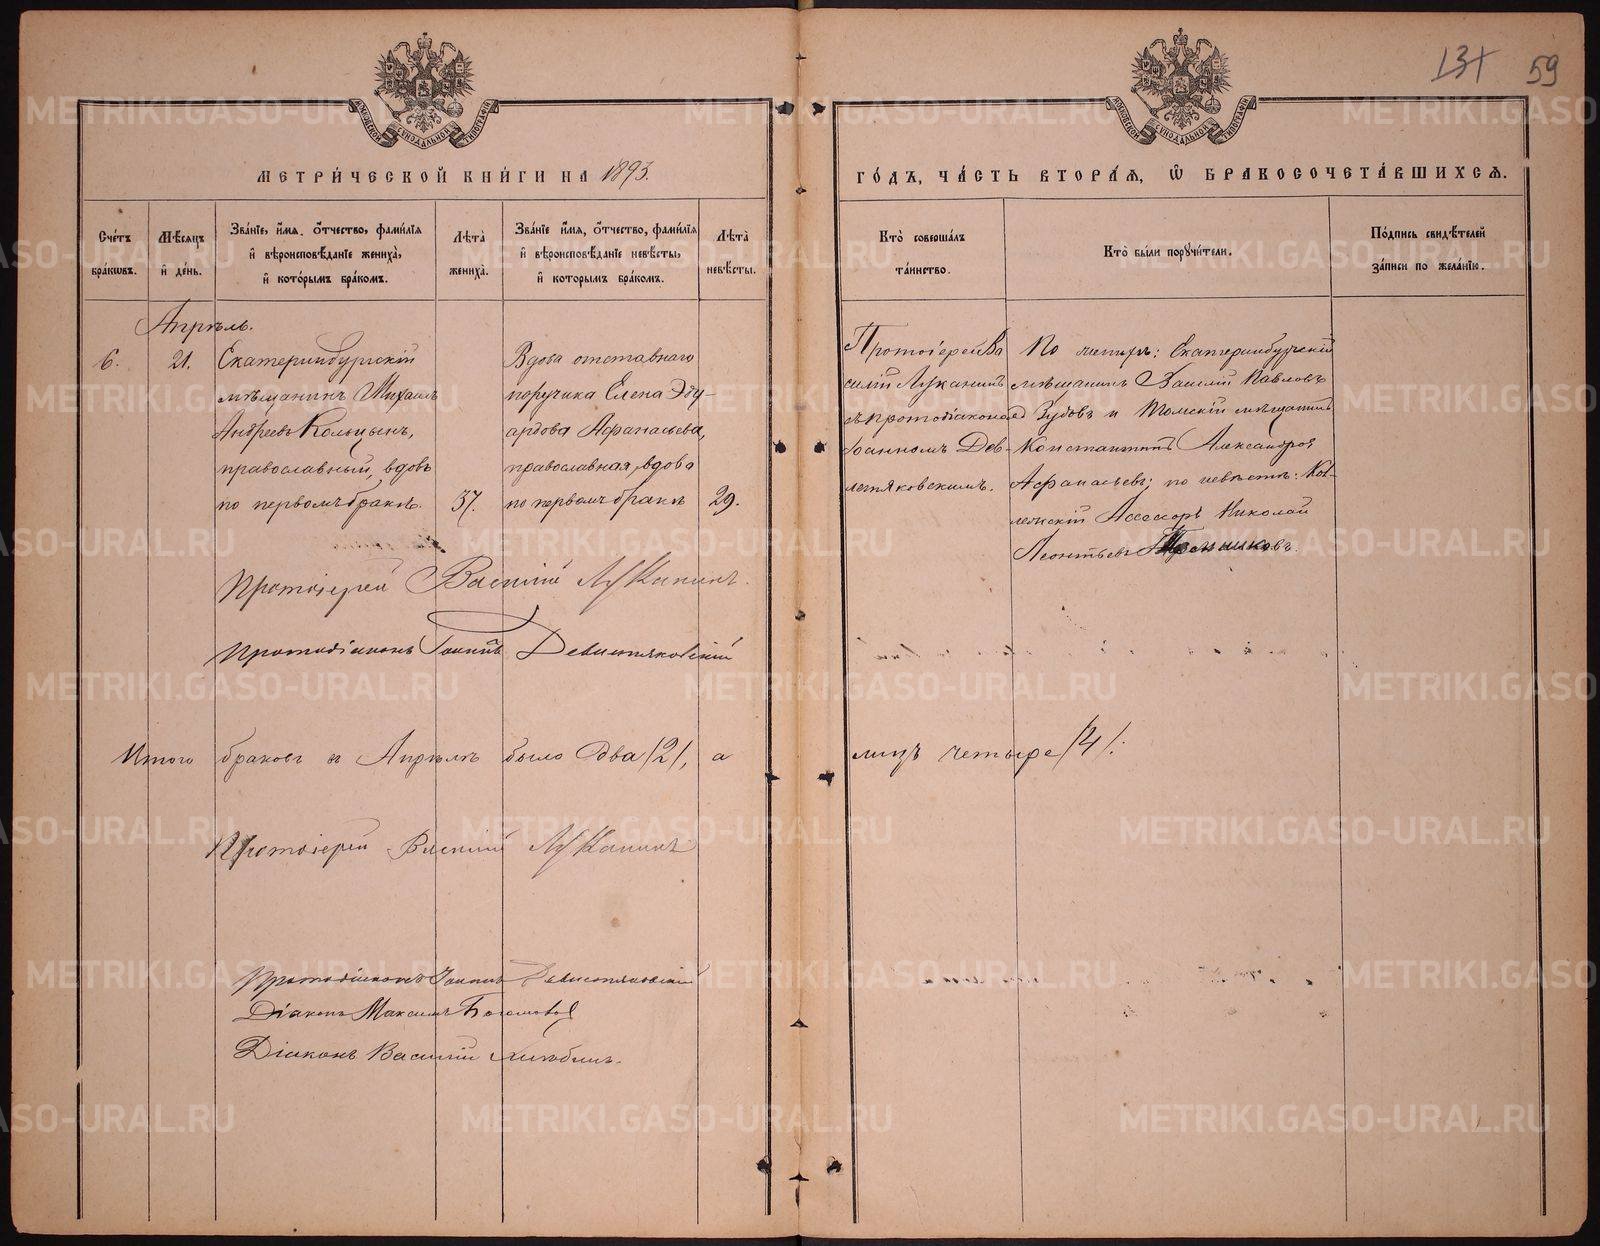 131 59
МЕТРИ́ЧЕСКОЙ КНИ́ГИ НА 1893.
ГО́ДЪ, ЧА́СТЬ ВТОРА́Ѧ, Ѡ БРАКОСОЧЕТА́ВШИХСѦ.
Сче́тъ бра́кѡвъ.
Мѣ́сѧцъ и де́нь.
Зва́нїе, и́мѧ, о́тчество, фами́лїѧ и вѣроисповѣ́данїе жениха̀, и кото́рымъ бра́комъ.
Лѣ́та жениха̀.
Зва́нїе и́мѧ, о́тчество, фами́лїѧ и вѣроисповѣ́данїе невѣ́сты, и кото́рымъ бра́комъ.
Лѣ́та невѣ́сты.
Кто̀ соверша́лъ та́инство.
Кто̀ бы́ли порꙋчи́тели.
По́дпись свидѣ́телей за́писи по жела́нїю.
Апрѣль.
6. 21.
Екатеринбургскій
мѣщанинъ Михаилъ
Андреевъ Кольцынъ,
православный, вдовъ
по первомъ бракѣ. 37.
Вдова отставнаго
поручика Елена Эду-
ардова Афанасьева,
православная, вдова
по первомъ бракѣ 29.
Протоіерей Ва
силій Луканинъ
съ протодіакономъ
Іоанномъ Дев-
летьяковскимъ.
По женихѣ: Екатеринбургскій
мѣщанинъ Василій Павловъ
Зубовъ и Томскій мѣщанинъ
Константинъ Александров
Афанасьевъ; по невѣстѣ: Кол-
лежскій Ассесоръ Николай
Леонтьевъ
Протоіерей Василій Луканинъ.
Протодіаконъ Іоаннъ Девлетьяковскій
Итого браковъ въ Апрѣлѣ было два /2/, а лицъ четыре /4/.
Протоіерей Василій Луканинъ
Протодіаконъ Іоаннъ Девлетьяковскій
Діаконъ Максимъ Богомоловъ
Діаконъ Василій
METRIKI.GASO-URAL.RU